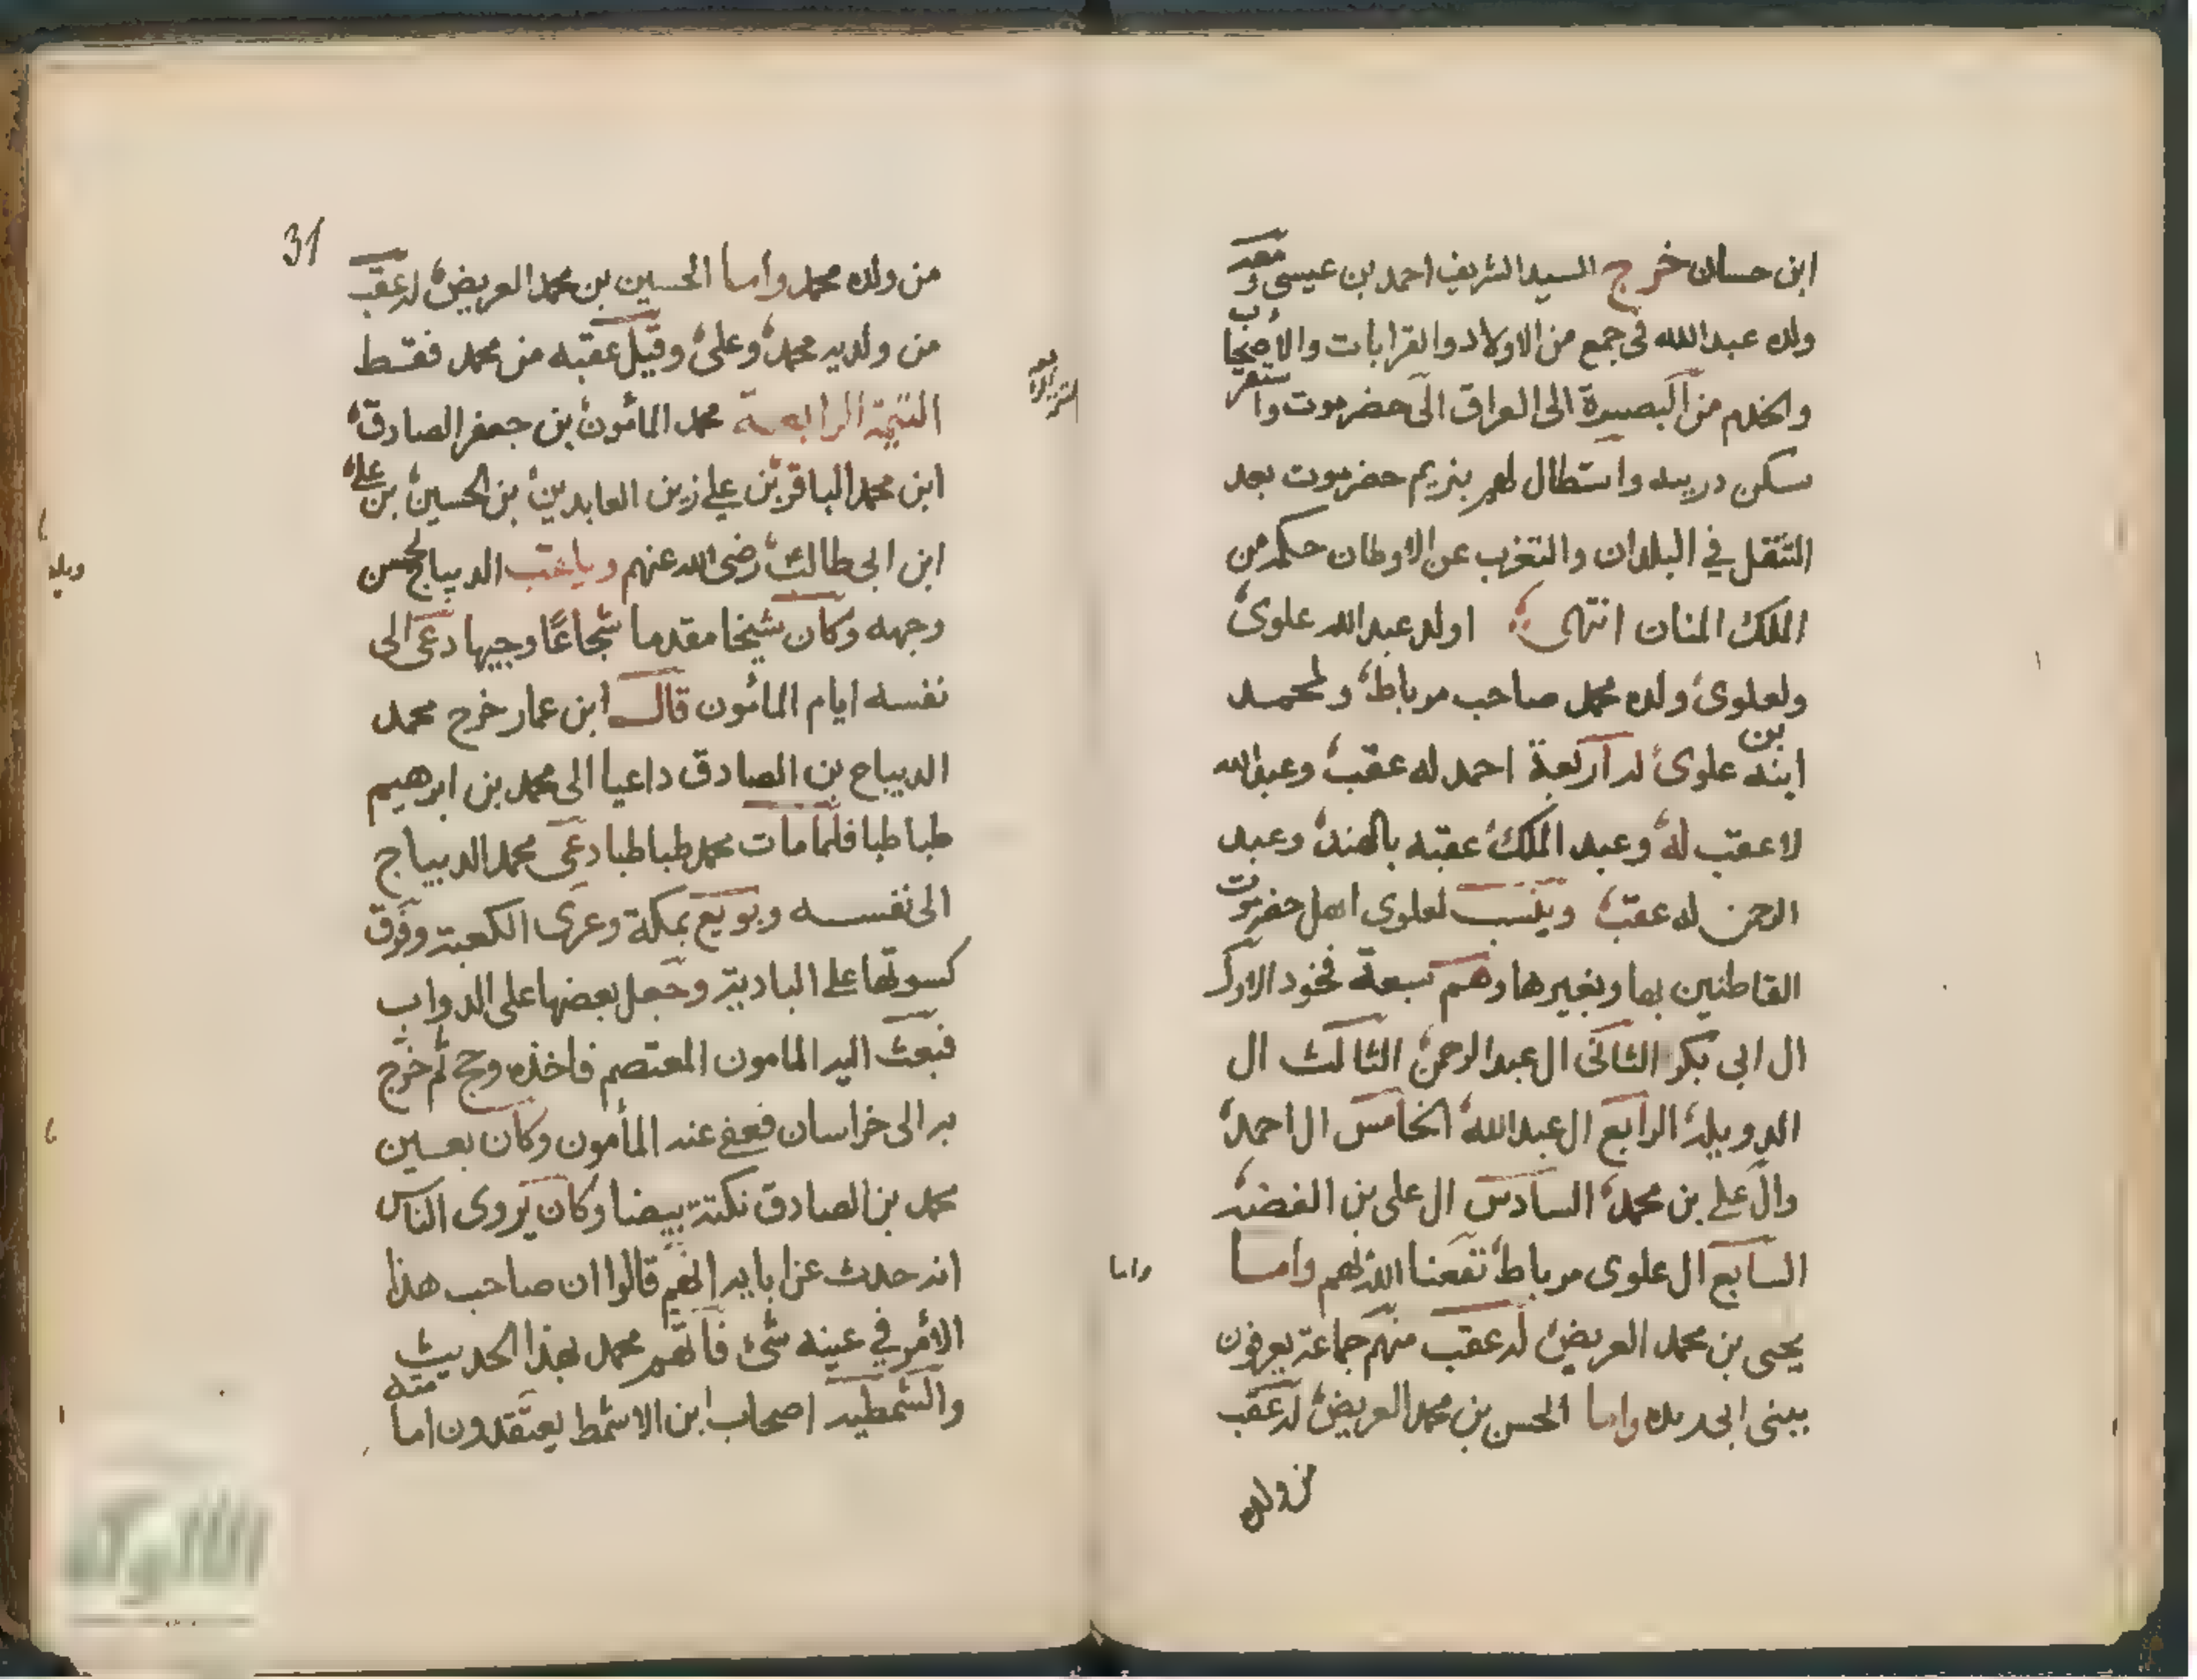 ابن حسان خرج السيد الشريف احمد بن عيسى ومعه
ولده عبدالله فى جمع من الاولاد والقرابات والاصحاب
والخدم من البصرة الى العراق الى حضرموت واستقر
سكن ذريته واستطال لهم بتريم حضرموت بعد
التنقل في البلدان والتغرب عن الاوطان حكمة من
الملك المنان انتهى اولد عبدالله علوى
ولعلوى ولده محمد صاحب مرباط ولمحمد
ابنه بن علوى له اربعة احمد له عقب وعبدالله
لا عقب له وعبد الملك عقبه بالهند وعبد
الرحمن له عقب وينسب لعلوى اهل حضرموت
القاطنين بها وبغيرها وهم سبعة فخود الاول
ال ابى بكر الثانى ال عبدالرحمن الثالث ال
الدويلة الرابع ال عبدالله الخامس ال احمد
وال على بن محمد السادس ال على بن الفضيه
السابع ال علوى مرباط نفعنا الله بهم واما
يحيى بن محمد العريضى له عقب منهم جماعة يعرفون
ببنى ابى واما الحسن بن محمد العريضى له عقب
من ولده
واما
31
من ولده محمد واما الحسين بن محمد العريضى له عقب
من ولديه محمد وعلى وقيل عقبه من محمد فقط
التتمة الرابعة محمد المأمون بن جعفر الصادق
ابن محمد الباقر بن على زين العابدين بن الحسين بن على
ابن ابى طالب رضى الله عنهم ويلقب الديباج لحسن
وجهه وكان شيخا مقدما شجاعًا وجيها دعى الى
نفسه ايام المأمون قال ابن عمار خرج محمد
الديباج بن الصادق داعيا الى محمد بن ابرهيم
طباطبا فلما مات محمد طباطبا دعى محمد الديباج
الى نفسه وبويع بمكة وعرى الكعبة وفرق
كسوتها على البادية وجعل بعضها على الدواب
فبعث اليه المامون المعتصم فاخذه وحج ثم خرج
به الى خراسان فعفى عنه المأمون وكان بعين
محمد بن الصادق نكتة بيضا وكان يروى الناس
انه حدث عن ابايه انهم قالوا ان صاحب هذا
الأمر في عينه شئ فاتهم محمد بهذا الحديث
والشمطيه اصحاب ابن الاشمط يعتقدون امامته